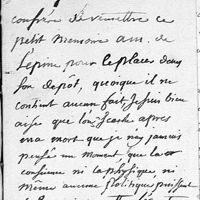 confrère de remettre ce
petit memoire a m. de
l'épine pour le placer dans
son depôt, quoique il ne
contient aucun fait, je suis bien
aise que l'on sache apres
ma mort que je n'ay jamais
pensé un moment que la
confience ni la phisique, ni
même aucune politique puissent